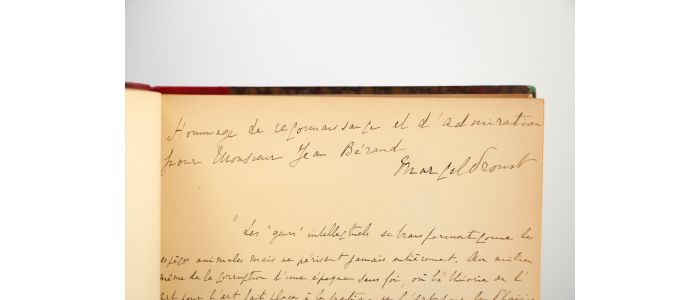 Hommage de reconnaissance et d'admiration
pour Monsieur Jean Béraud
Marcel Proust
"Les "genres" intellectuels se transforment comme les
espèces animales mais ne périssent jamais entièrement. Au milieu
même de la corruption d'une époque sans foi, où la "théorie de l'
art pour l'art fait place à la pratique de l'art pour le Plaisir